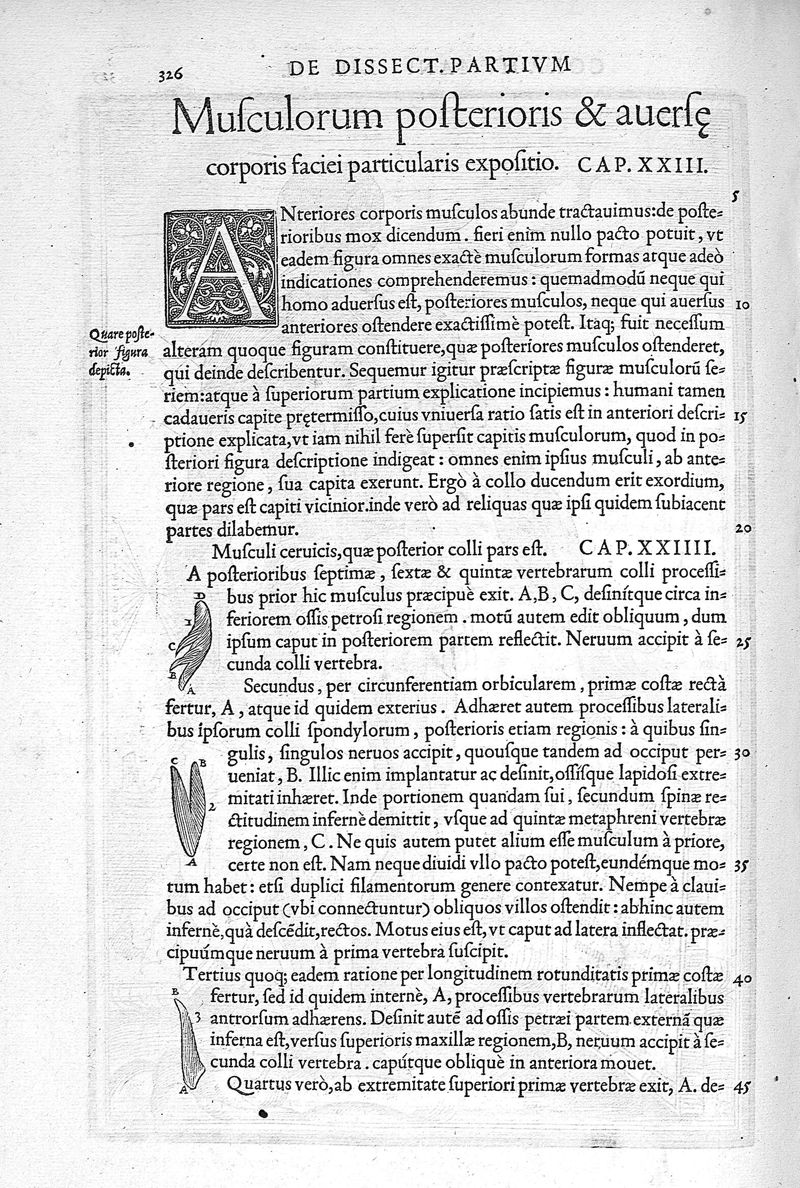 326
DE DISSECT. PARTIVM
Muſculorum poſterioris & auerſę
corporis faciei particularis expoſitio. CAP. XXIII.
5
ANteriores corporis muſculos abunde tractauimus: de poſte⸗
rioribus mox dicendum. fieri enim nullo pacto potuit, vt
eadem figura omnes exactè muſculorum formas atque adeò
indicationes comprehenderemus: quemadmodū neque qui
homo aduerſus eſt, poſteriores muſculos, neque qui auerſus 10
anteriores oſtendere exactiſſimè poteſt. Itaq; fuit neceſſum
Quare poſte⸗
rior figura
depicta.
alteram quoque figuram conſtituere, quæ poſteriores muſculos oſtenderet,
qui deinde deſcribentur. Sequemur igitur præſcriptæ figuræ muſculorū ſe⸗
riem: atque à ſuperiorum partium explicatione incipiemus: humani tamen
cadaueris capite prętermiſſo, cuius vniuerſa ratio ſatis eſt in anteriori deſcri⸗ 15
ptione explicata, vt iam nihil ferè ſuperſit capitis muſculorum, quod in po⸗
ſteriori figura deſcriptione indigeat: omnes enim ipſius muſculi, ab ante⸗
riore regione, ſua capita exerunt. Ergò à collo ducendum erit exordium,
quæ pars eſt capiti vicinior. inde verò ad reliquas quæ ipſi quidem ſubiacent
partes dilabemur. 20
Muſculi ceruicis, quæ poſterior colli pars eſt. CAP. XXIIII.
A poſterioribus ſeptimæ, ſextæ & quintæ vertebrarum colli proceſſi⸗
bus prior hic muſculus præcipuè exit. A, B, C, deſinítque circa in⸗
feriorem oſſis petroſi regionem. motū autem edit obliquum, dum
ipſum caput in poſteriorem partem reflectit. Neruum accipit à ſe⸗ 25
cunda colli vertebra.
D
1
C
B
A
Secundus, per circunferentiam orbicularem, primæ coſtæ rectà
fertur, A, atque id quidem exterius. Adhæret autem proceſſibus laterali⸗
bus ipſorum colli ſpondylorum, poſterioris etiam regionis: à quibus ſin⸗
gulis, ſingulos neruos accipit, quouſque tandem ad occiput per⸗ 30
ueniat, B. Illic enim implantatur ac deſinit, oſſíſque lapidoſi extre⸗
mitati inhæret. Inde portionem quandam ſui, ſecundum ſpinæ re⸗
ctitudinem infernè demittit, vſque ad quintæ metaphreni vertebræ
regionem, C. Ne quis autem putet alium eſſe muſculum à priore,
certe non eſt. Nam neque diuidi vllo pacto poteſt, eundémque mo⸗ 35
C B
2
A
tum habet: etſi duplici filamentorum genere contexatur. Nempe à claui⸗
bus ad occiput (vbi connectuntur) obliquos villos oſtendit: abhinc autem
infernè, quà deſcēdit, rectos. Motus eius eſt, vt caput ad latera inflectat. præ⸗
cipuúmque neruum à prima vertebra ſuſcipit.
Tertius quoq; eadem ratione per longitudinem rotunditatis primæ coſtæ 40
fertur, ſed id quidem internè, A, proceſſibus vertebrarum lateralibus
antrorſum adhærens. Deſinit autē ad oſſis petræi partem externā quæ
inferna eſt, verſus ſuperioris maxillæ regionem, B, neruum accipit à ſe⸗
cunda colli vertebra. capútque obliquè in anteriora mouet.
B
3
A
Quartus verò, ab extremitate ſuperiori primæ vertebræ exit, A. de⸗ 45